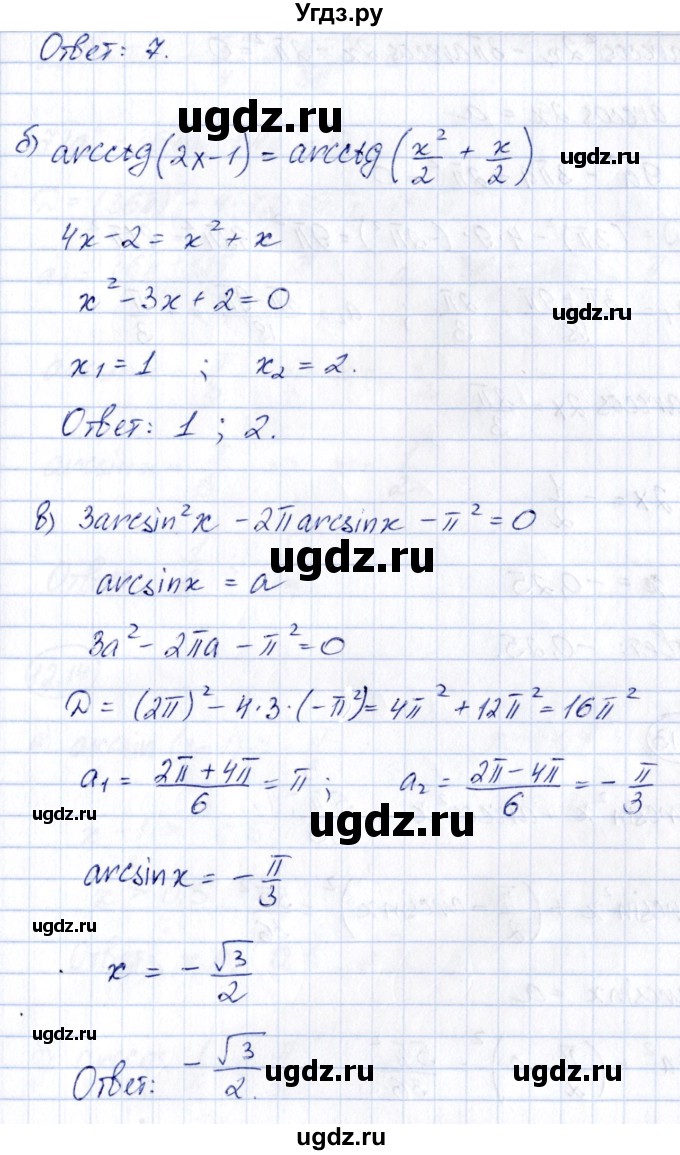 Угдз.ру
Ответ: 7.
ugdz.ru
б) arcctg(2x-1) = arcctg(x²/2 + x/2)
ugdz.ru
4x-2 = x² + x
x² - 3x + 2 = 0
ugdz.ru
x₁ = 1 ; x₂ = 2.
Ответ: 1 ; 2.
в) 3arcsin²x - 2π arcsinx - π² = 0
ugdz.ru
arcsinx = a
3a² - 2πa - π² = 0
ugdz.ru
D = (2π)² - 4·3·(-π²) = 4π² + 12π² = 16π²
a₁ = (2π + 4π)/6 = π; a₂ = (2π - 4π)/6 = -π/3
ugdz.ru
ugdz.ru
arcsinx = -π/3
ugdz.ru
x = -√3/2
ugdz.ru
ugdz.ru
ugdz.ru
Ответ: -√3/2.
ugdz.ru